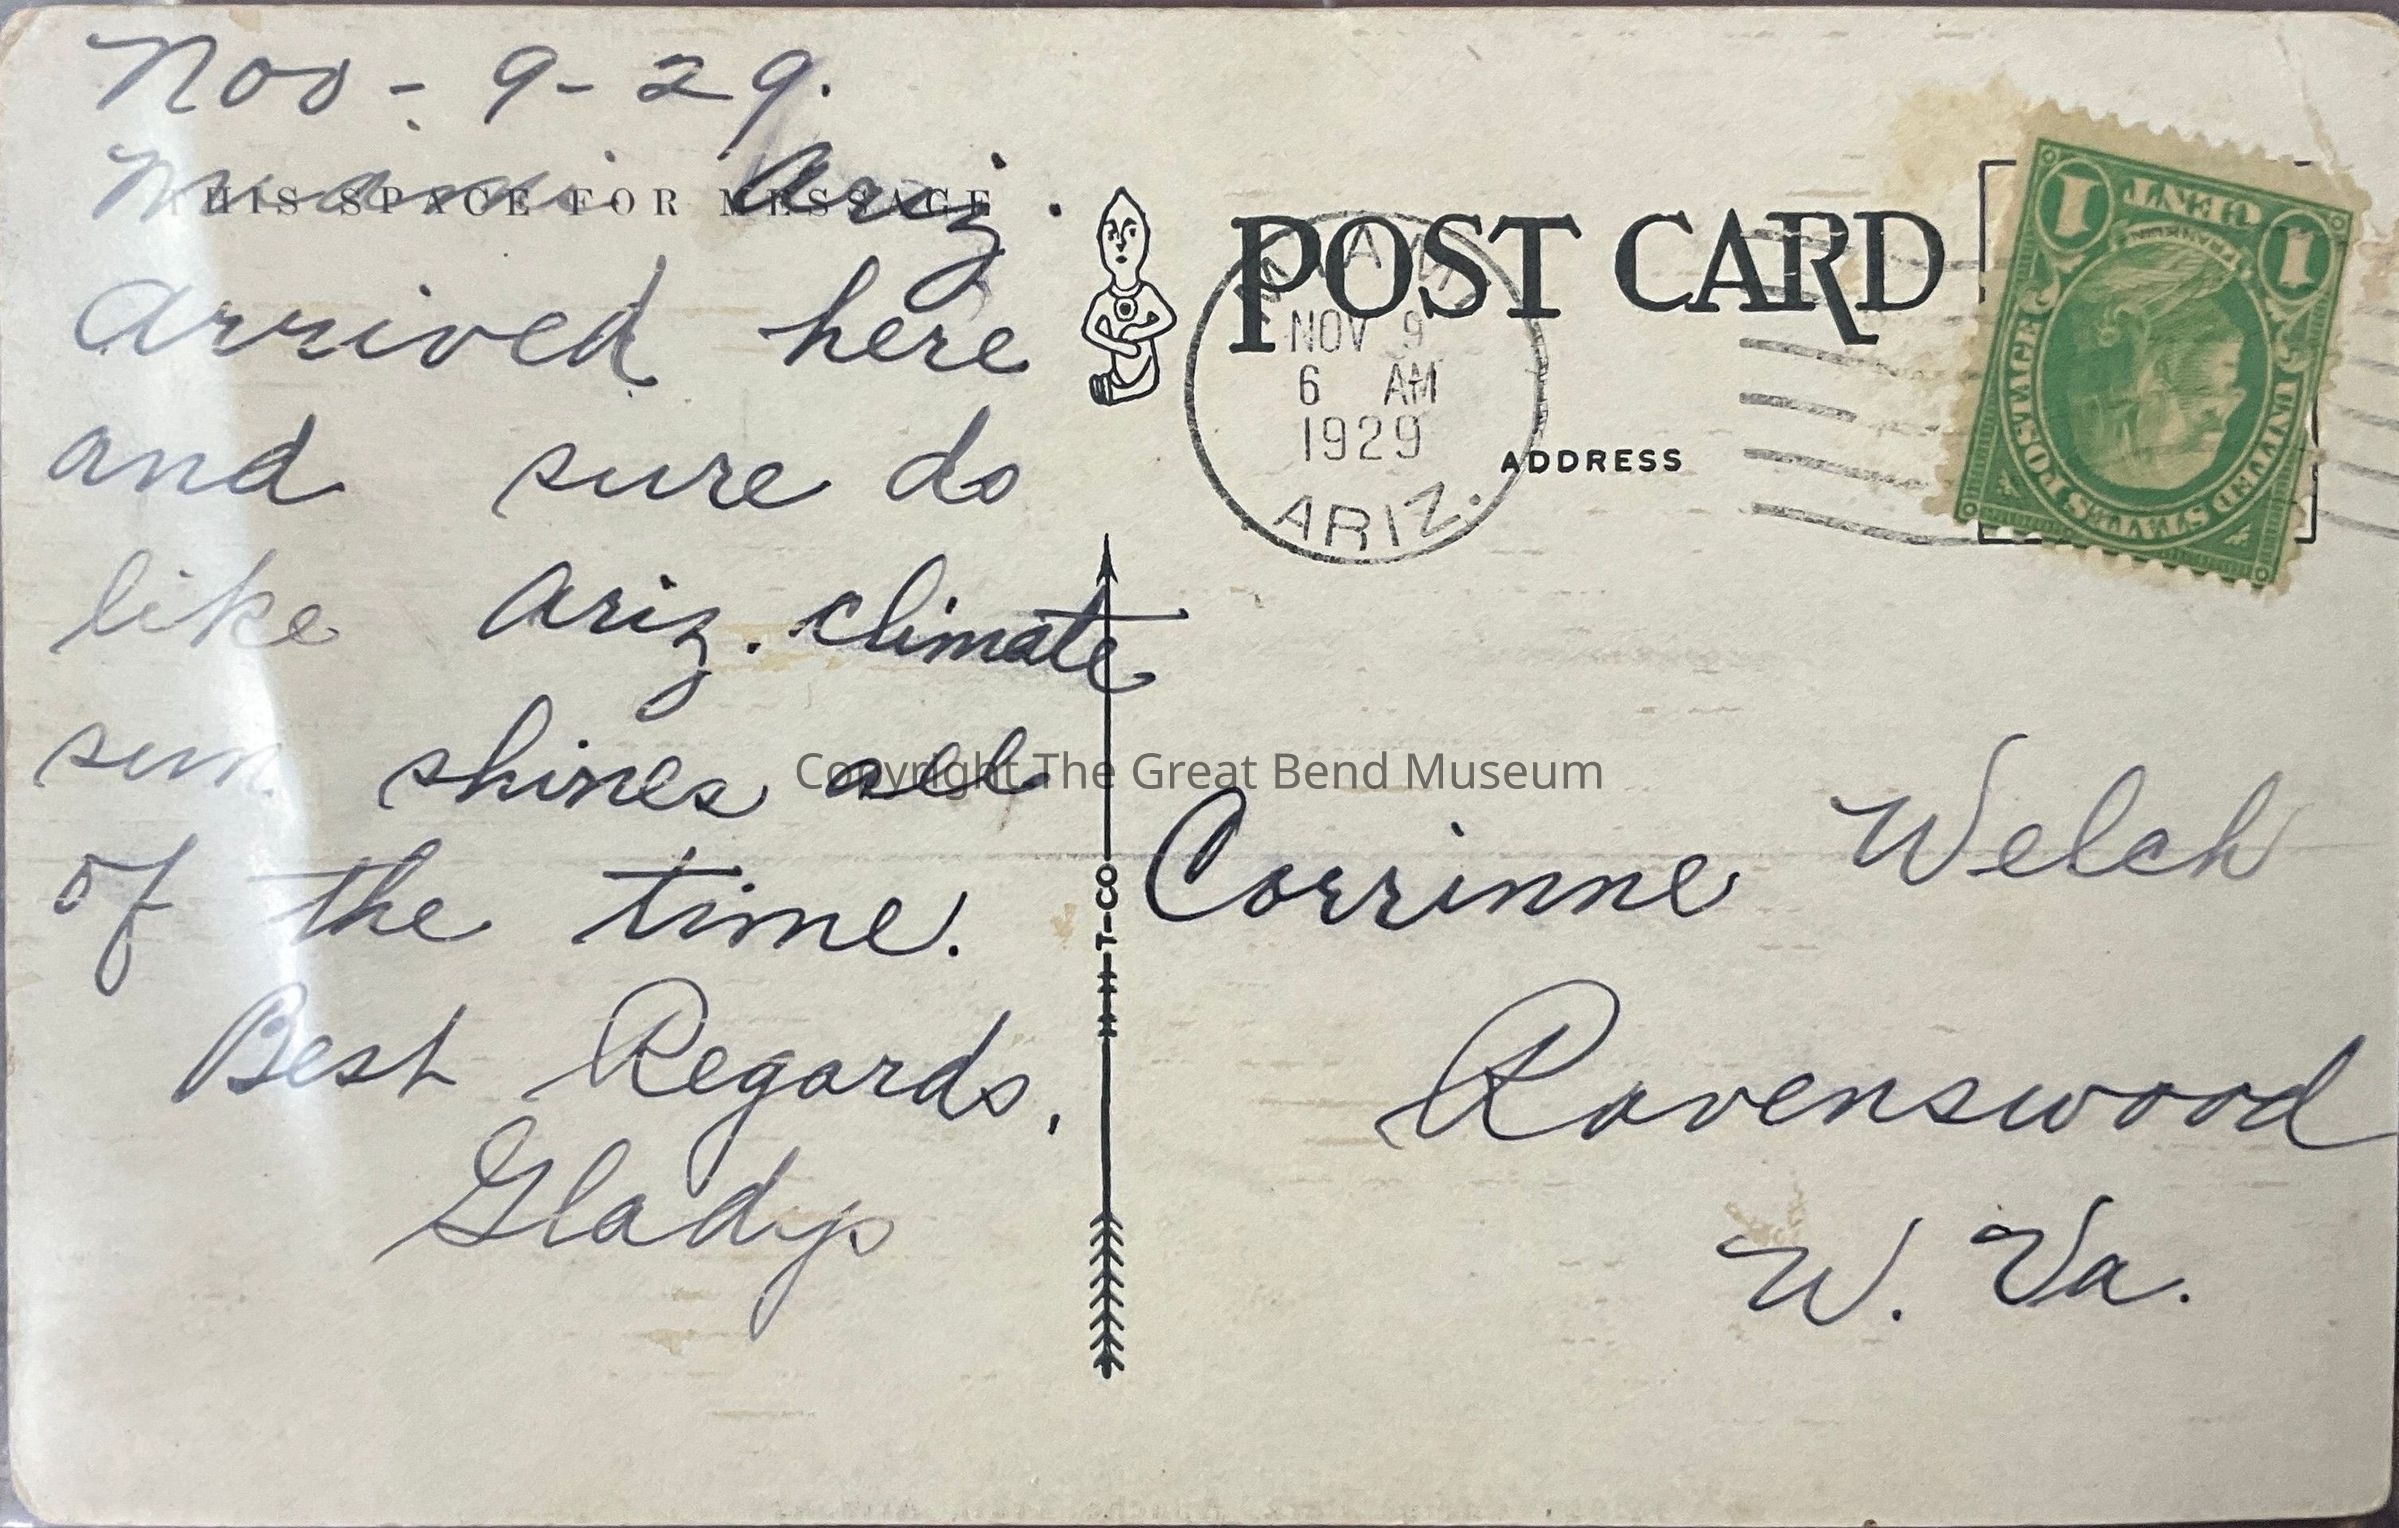 Nov - 9 - 29.
Miami Ariz.
THIS SPACE FOR MESSAGE
Arrived here
and sure do
like Ariz. climate
sun shines all
of the time.
Best Regards,
Gladys
POST CARD
MIAMI
NOV 9
6 AM
1929
ARIZ.
ADDRESS
1 CENT 1
FRANKLIN
UNITED STATES POSTAGE
Corrinne Welch
Ravenswood
W. Va.
Copyright The Great Bend Museum